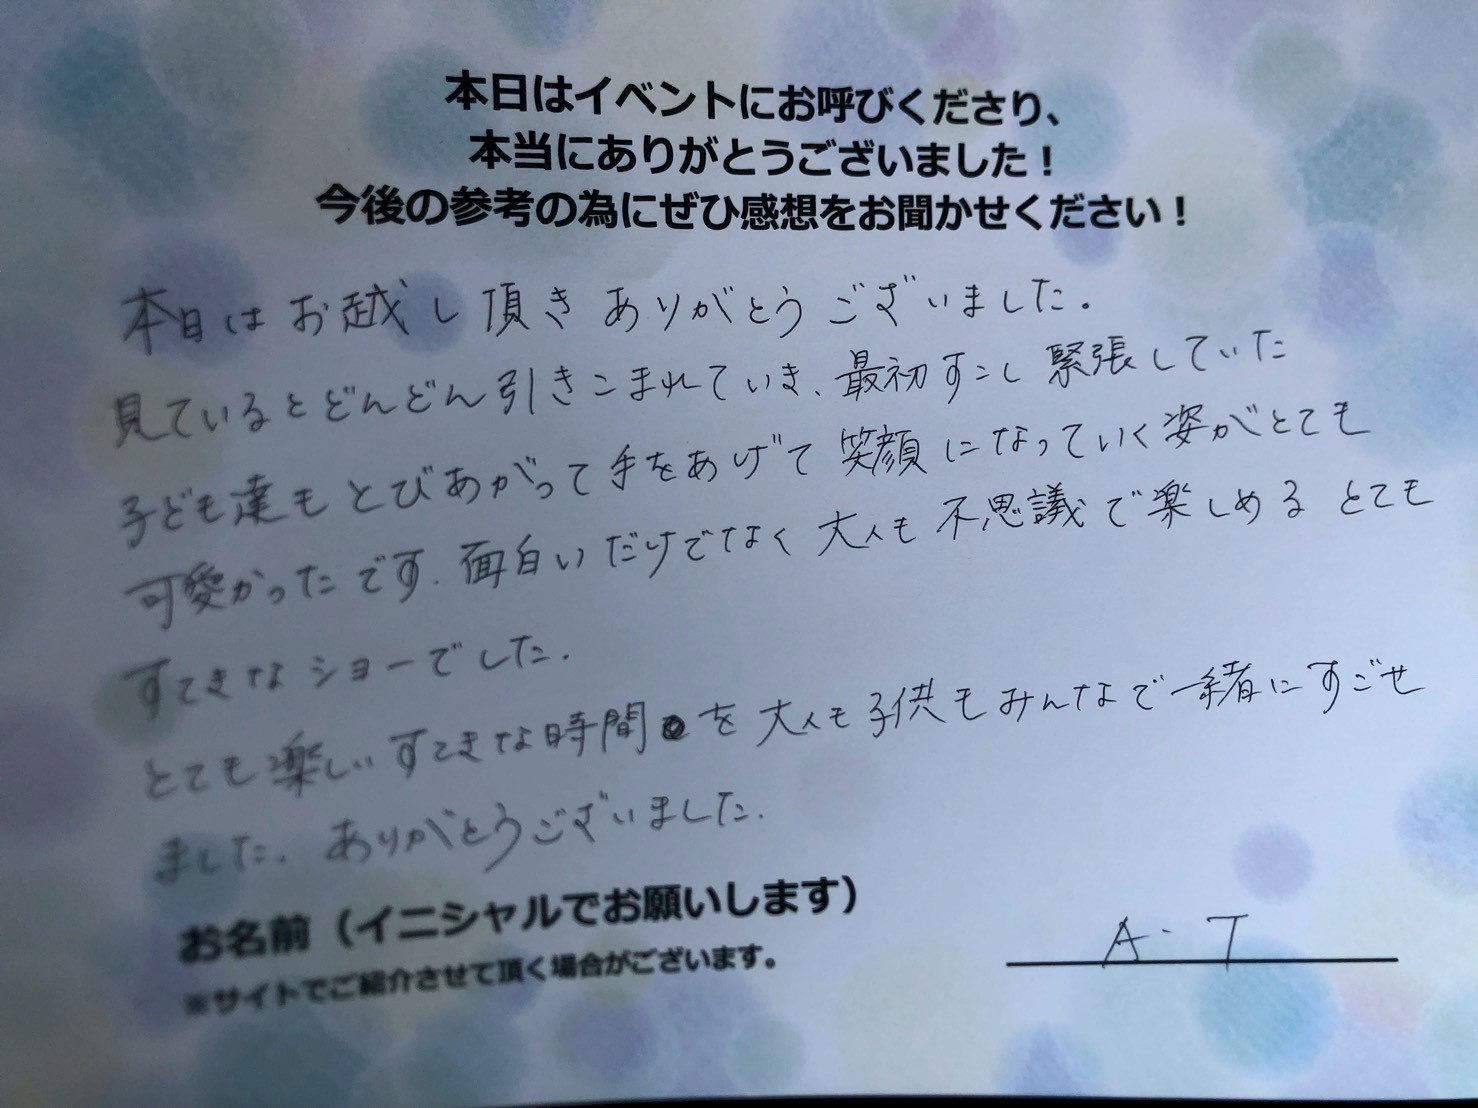 本日はイベントにお呼びくださり、
本当にありがとうございました！
今後の参考の為にぜひ感想をお聞かせください！
本日はお越し頂きありがとうございました。
見ているとどんどん引きこまれていき、最初すこし緊張していた
子ども達もとびあがって手をあげて笑顔になっていく姿がとても
可愛かったです。面白いだけでなく大人も不思議で楽しめるとても
すてきなショーでした。
とても楽しいすてきな時間を大人も子供もみんなで一緒にすごせ
ました。ありがとうございました。
お名前（イニシャルでお願いします）
A・T
※サイトでご紹介させて頂く場合がございます。